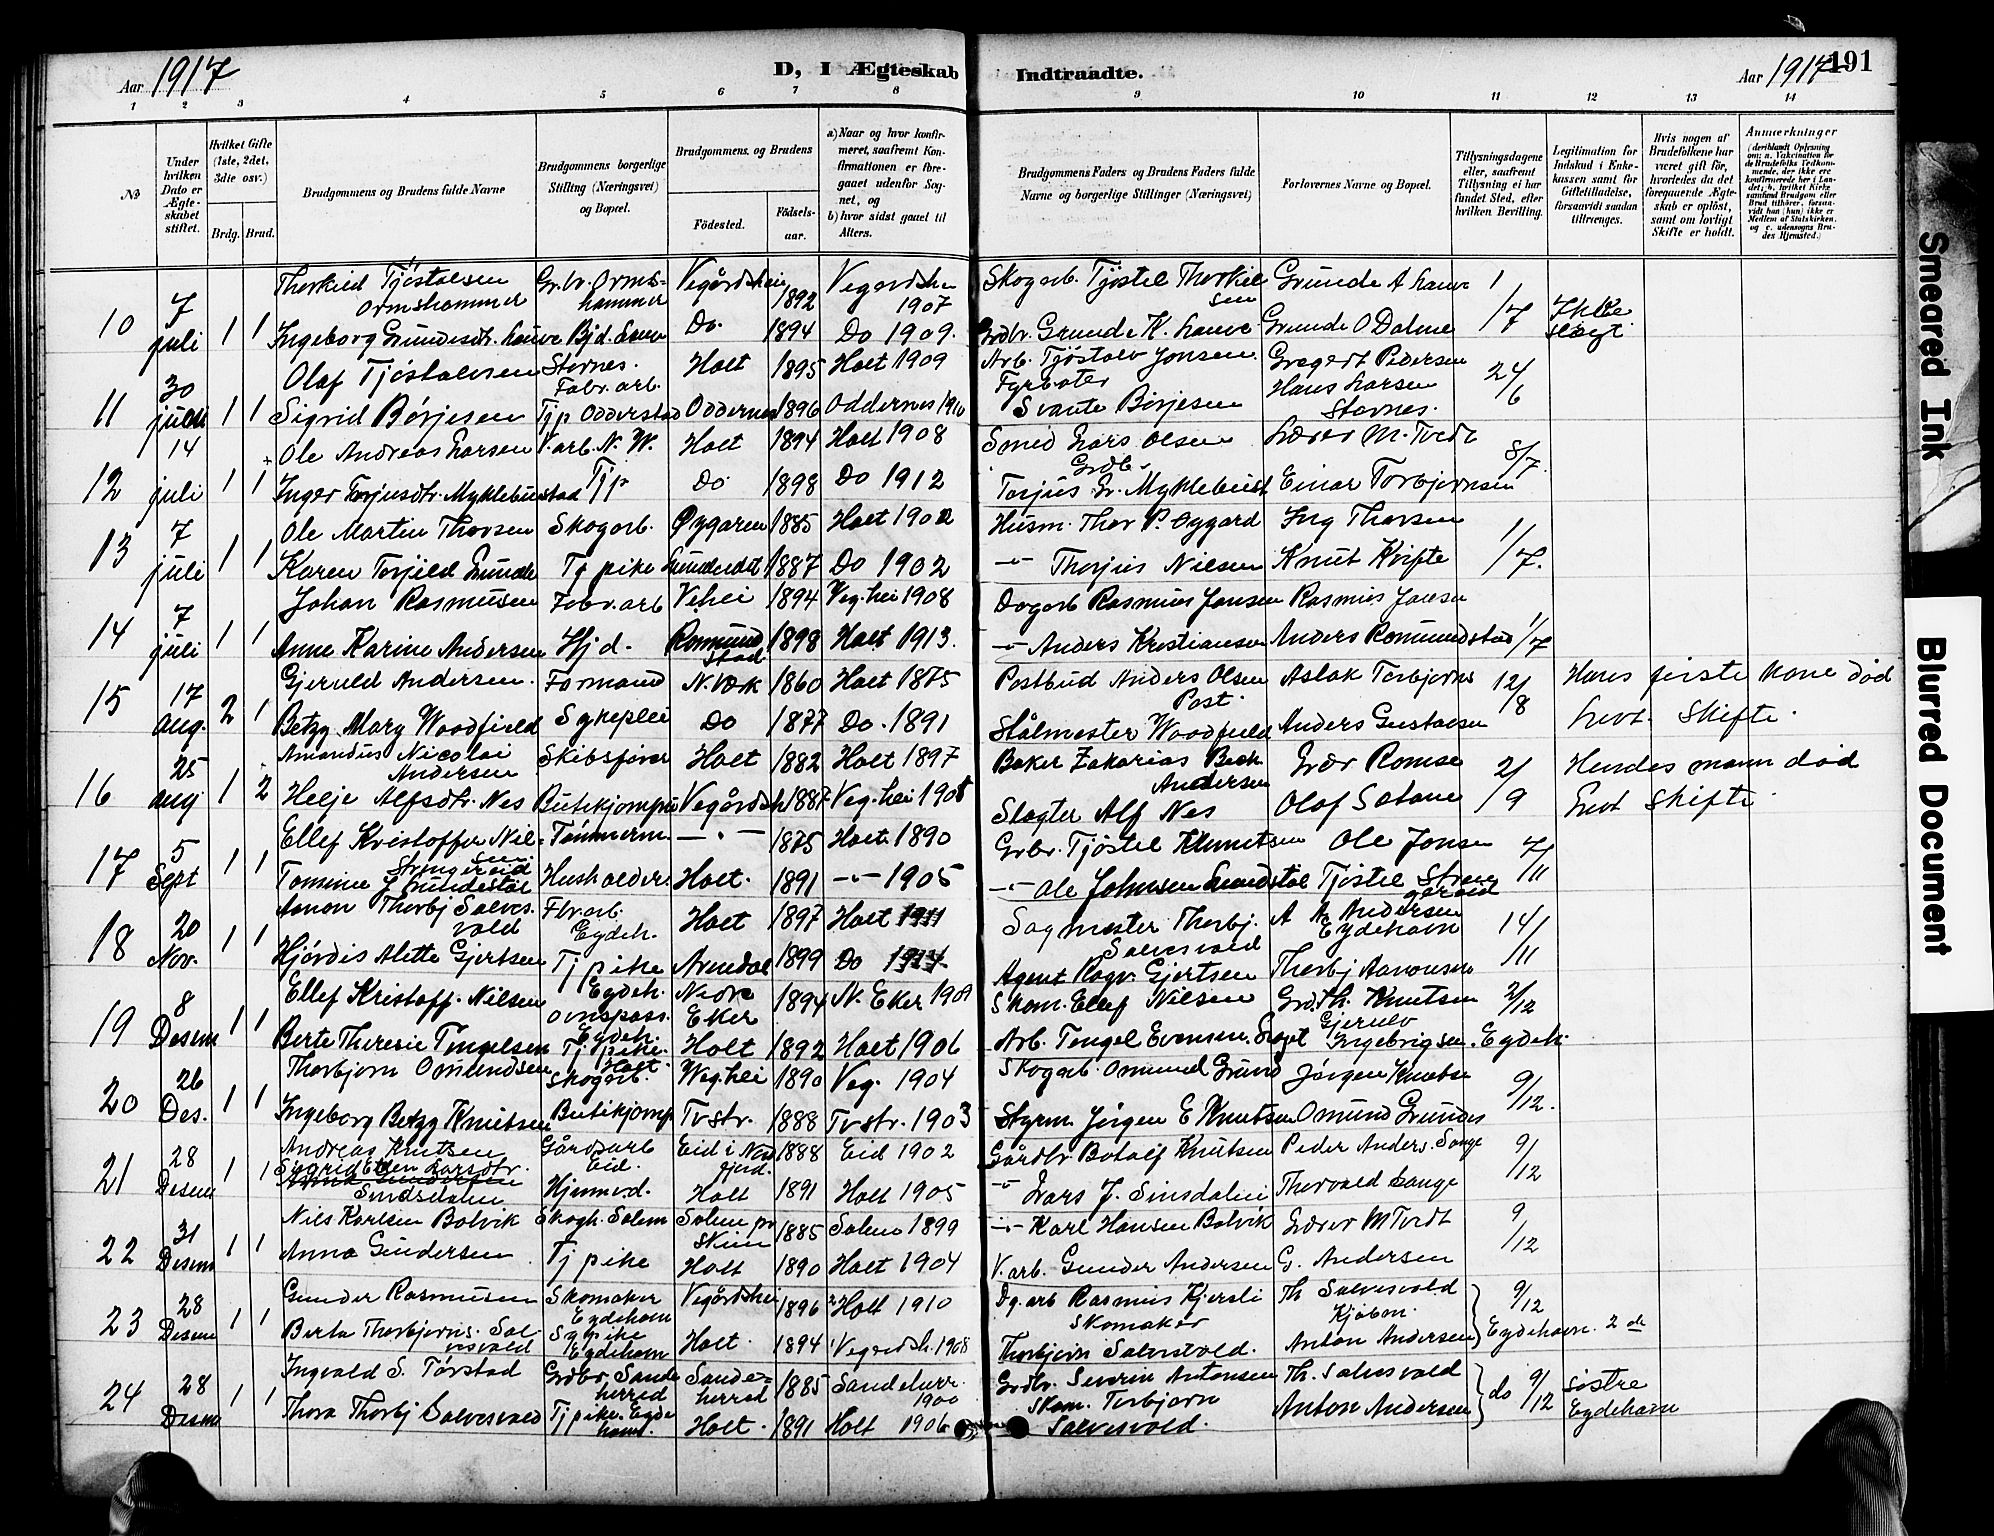 Aar 1917
D, I Ægteskab Indtraadte.
Aar 1917
191
1 2 3 4 5 6 7 8 9 10 11 12 13 14
No
Under hvilken Dato er Ægteskabet stiftet.
Hvilket Gifte (1ste, 2det, 3die osv.)
Brdg. Brud.
Brudgommens og Brudens fulde Navne
Brudgommens borgerlige Stilling (Næringsvei) og Bopæl.
Brudgommens og Brudens
Fødested.
Fødselsaar.
a) Naar og hvor konfirmeret, saafremt Konfirmationen er foregaaet udenfor Sognet, og
b) hvor sidst gaaet til Alters.
Brudgommens Faders og Brudens Faders fulde Navne og borgerlige Stillinger (Næringsvei)
Forlovernes Navne og Bopæl.
Tillysningsdagene eller, saafremt Tillysning ei har fundet Sted, efter hvilken Bevilling.
Legitimation for Indskud i Enkekassen samt for Giftetilladelse, forsaavidt saadan tiltrænges.
Hvis nogen af Brudefolkene har været gift før, hvorledes da det foregaaende Ægteskab er opløst, samt om lovligt Skifte er holdt.
Anmærkninger
10 7 juli 1 1
Thorkild Tjöstolsen Ormshammer Gr.br. Ormshammer Vegårdshei 1892 Vegårdshei 1907 Skogarb. Tjöstel Thorkilsen Grunde A Lauve 1/7 Ikke slegt
Ingeborg Grundesdtr. Lauve Do. 1894 Do 1909. Grdbr. Grunde K. Lauve Grunde O Dalene
11 30 juni 1 1
Olaf Tjöstolvsen Stornes. Fabr. arb. Holt 1895 Holt 1909 Arb. Tjöstolv Jonsen Gregert Pedersen 24/6
Sigrid Börjesen Tjp Odderstad Oddernes 1896 Oddernes 1910 Fyrböter Svante Börjesen Hans Larsen Stornes.
12 14 juli 1 1
Ole Andreas Larsen V.arb. N. W. Holt 1894 Holt 1908 Smed Lars Olsen Lærer M. Tvedt 8/7.
Inger Torjusdtr. Myklebustad Tjp Do 1898 Do 1912 Grdb. Torjus Gr. Myklebust Einar Torbjornsen
13 7 juli 1 1
Ole Martin Thorsen Skogarb. Öygaren 1885 Holt 1902 Husm. Thor P. Oygard Ing Thorsen 1/7.
Karen Torjild Lunde Tj pike 1887 Do 1902 -"- Thorjus Nilsen Knut Kvifte
14 7 juli 1 1
Johan Rasmusen Fabr. arb V.hei 1894 Veg.hei 1908 Dagarb Rasmus Jansen Rasmus Jansen 1/7
Anne Karine Andersen Hjd. Romundstad 1898 Holt 1913. -"- Anders Kristiansen Anders Romundstad
15 17 aug. 2 1
Gjeruld Andersen. Formand N. Værk 1860 Holt 1875 Postbud Anders Olsen Post. Aslak Torbjorns 12/8 Hans første kone död
Betzy Mary Woodfield Sykeplei Do 1877 Do. 1891 Stålmester Woodfield Anders Gustavsen Lovt. Skifte.
16 25 aug 1 2
Amandus Nicolai Andersen Skibsförer Holt 1882 Holt 1897 Baker Zakarias Bech Andersen Lær Romse 2/9 Hendes mann död
Helje Alfsdtr. Nes Butikjomfru Vegårdsh 1887 Veg.hei 1908 Slagter Alf Nes Olaf Solone Lovt Skifte.
17 5 Sept 1 1
Ellef Kristoffer Nilsen Strengereid Tömmerm -"- 1875 Holt 1890 Grbr. Tjöstel Knutsen Ole Jonsen 7/11
Tomine J Lundestöl Husholder. Holt. 1891 -"- 1905 -"- Ole Johnsen Lundstöl Tjöstel Strengereid
18 20 Nov. 1 1
Aanon Thorbj Salvesvold Fbr. arb. Eydeh. Holt 1897 Holt 1911 Sagmester Thorbj. Salvesvold A A Andersen Eydehavn 14/11
Hjördis Alette Gjertsen Tj pike Eydeh. Arendal 1899 Do 1914 Agent Ragv. Gjertsen Thorbj Aanonsen
19 8 Desem 1 1
Ellef Kristoff. Nilsen ovnspass. Eydeh. Nedre Eker 1894 N. Eker 1909 Skom. Ellef Nilsen Grd. Th. Knutsen 2/12
Berte Theresie Tengelsen Tj pike. Holt Holt 1892 Holt 1906 Arb. Tengel Evensen Gjerulv Ingebrigsen. Eydeh.
20 26 Des. 1 1
Thorbjorn Omundsen Skogarb. Veg.hei 1890 Veg. 1904 Skogarb. Omund Grund Jörgen Knutsen 9/12.
Ingeborg Betzy Knutsen Butikjomf Tvstr. 1888 Tvstr. 1903 Styrm Jörgen E Knutsen Omund Grundes
21 28 Desem 1 1
Andreas Knutsen Gårdsarb Eid. Eid i Nesfjord. 1888 Eid 1902 Gårdbr Botolf Knutsen Peder Anders. Songe 9/12
Sigrid Ellen Larsdtr. Sinsdalen Hjemmevd. Holt 1891 Holt 1905 -"- Lars J. Sinsdalen Thorvald Lange
22 31 Desem 1 1
Nils Karlsen Bolvik Skogh. Solem Solem pr Skien 1885 Solem 1899 -"- Karl Hansen Bolvik Lærer M Tvedt 9/12
Anna Gundersen Tj pike Holt 1890 Holt 1904 V. arb. Gunder Andersen G. Andersen
23 28 Desem 1 1
Gunder Rasmusen Skomaker Eydehavn Vegårdshei 1896 Holt 1910 Dg. arb Rasmus Kjersli Th Salvesvold Kjöbm. 9/12
Berta Thorbjorns. Salvesvold Sypike Eydehavn Holt. 1894 Vegardsh. 1908 Skomaker Thorbjorn Salvesvold. Anton Andersen Eydehavn. 2 de
24 28 Desem 1 1
Ingvald S. Törstad Grdbr. Sandeherred Sandeherred 1885 Sandeherr. 1900 Grdbr. Severin Antonsen Th. Salvesvold do 9/12 söstre Eydehavn
Thora Thorbj Salvesvold Tj pike. Eydehavn. Holt. 1891 Holt 1906 Skom. Torbjorn Salvesvold. Anton Andersen
Smeared Ink
Blurred Document